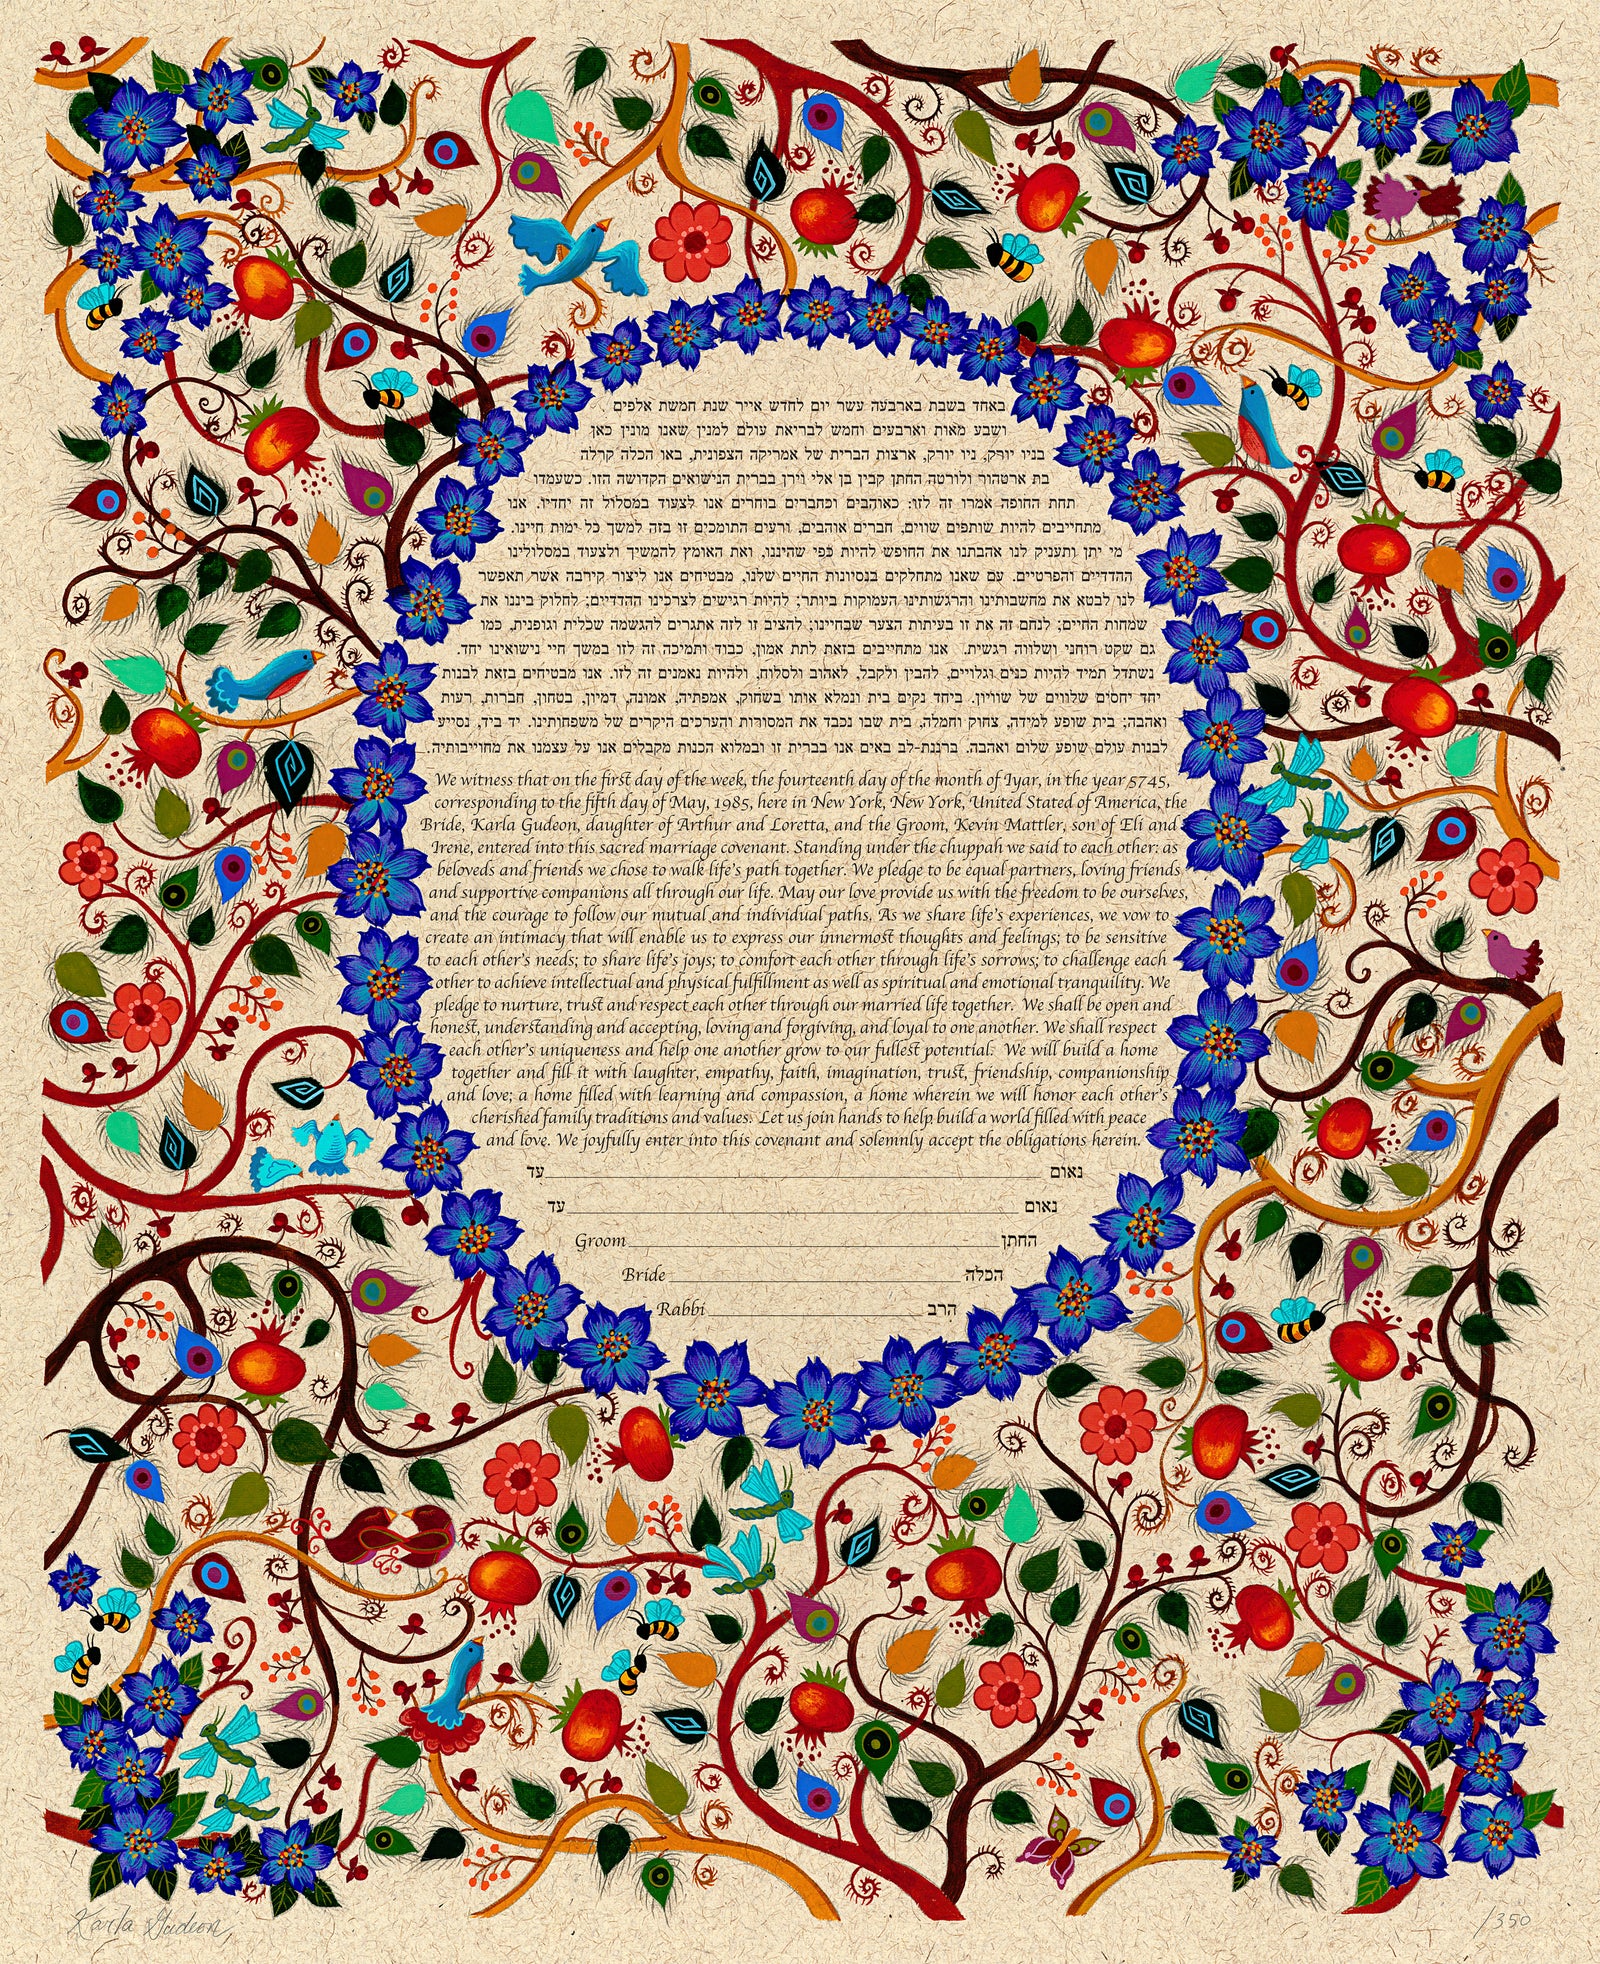 באחד בשבת בארבעה עשר יום לחדש אייר שנת חמשת אלפים
ושבע מאות וארבעים וחמש לבריאת עולם למנין שאנו מונין כאן
בניו יורק, ניו יורק, ארצות הברית של אמריקה הצפונית, באו הכלה קרלה
בת ארטהור ולורטה החתן קבין בן אלי וירן בברית הנישואים הקדושה הזו. כשעמדו
תחת החופה אמרו זה לזו: כאוהבים וכחברים בוחרים אנו לצעוד במסלול זה יחדיו. אנו
מתחייבים להיות שותפים שווים, חברים אוהבים, ורעים התומכים זו בזה למשך כל ימות חיינו.
מי יתן ותעניק לנו אהבתנו את החופש להיות כפי שהיננו, ואת האומץ להמשיך ולצעוד במסלולינו
ההדדיים והפרטיים. עם שאנו מתחלקים בנסיונות החיים שלנו, מבטיחים אנו ליצור קירבה אשר תאפשר
לנו לבטא את מחשבותינו והרגשותינו העמוקות ביותר; להיות רגישים לצרכינו ההדדיים; לחלוק ביננו את
שמחות החיים; לנחם זה את זו בעיתות הצער שבחיינו; להציב זו לזה אתגרים להגשמה שכלית וגופנית, כמו
גם שקט רוחני ושלווה רגשית. אנו מתחייבים בזאת לתת אמון, כבוד ותמיכה זה לזו במשך חיי נישואינו יחד.
נשתדל תמיד להיות כנים וגלויים, להבין ולקבל, לאהוב ולסלוח, ולהיות נאמנים זה לזו. אנו מבטיחים בזאת לבנות
יחד יחסים שלווים של שוויון. ביחד נקים בית ונמלא אותו בשחוק, אמפתיה, אמונה, דמיון, בטחון, חברות, רעות
ואהבה; בית שופע למידה, צחוק וחמלה, בית שבו נכבד את המסורות והערכים היקרים של משפחותינו. יד ביד, נסייע
לבנות עולם שופע שלום ואהבה. ברננת-לב באים אנו בברית זו ובמלוא הכנות מקבלים אנו על עצמנו את מחוייבותיה.
We witness that on the first day of the week, the fourteenth day of the month of Iyar, in the year 5745,
corresponding to the fifth day of May, 1985, here in New York, New York, United Stated of America, the
Bride, Karla Gudeon, daughter of Arthur and Loretta, and the Groom, Kevin Mattler, son of Eli and
Irene, entered into this sacred marriage covenant. Standing under the chuppah we said to each other: as
beloveds and friends we chose to walk life's path together. We pledge to be equal partners, loving friends
and supportive companions all through our life. May our love provide us with the freedom to be ourselves,
and the courage to follow our mutual and individual paths. As we share life's experiences, we vow to
create an intimacy that will enable us to express our innermost thoughts and feelings; to be sensitive
to each other's needs; to share life's joys; to comfort each other through life's sorrows; to challenge each
other to achieve intellectual and physical fulfillment as well as spiritual and emotional tranquility. We
pledge to nurture, trust and respect each other through our married life together. We shall be open and
honest, understanding and accepting, loving and forgiving, and loyal to one another. We shall respect
each other's uniqueness and help one another grow to our fullest potential. We will build a home
together and fill it with laughter, empathy, faith, imagination, trust, friendship, companionship
and love; a home filled with learning and compassion, a home wherein we will honor each other's
cherished family traditions and values. Let us join hands to help build a world filled with peace
and love. We joyfully enter into this covenant and solemnly accept the obligations herein.
נאום עד
נאום עד
Groom החתן
Bride הכלה
Rabbi הרב
Karla Gudeon /350